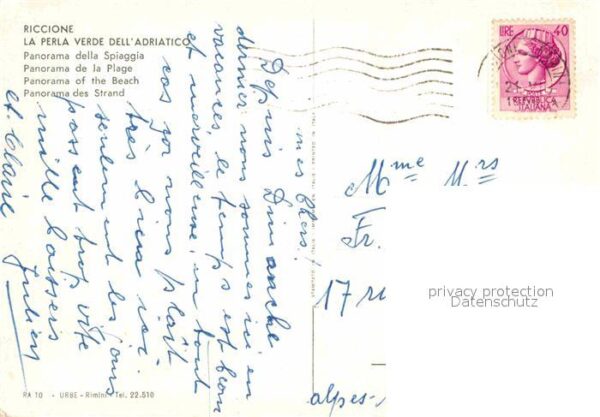 RICCIONE
LA PERLA VERDE DELL'ADRIATICO
Panorama della Spiaggia
Panorama de la Plage
Panorama of the Beach
Panorama des Strand
mes Chers!
Depuis Dimanche
dernier nous sommes ici en
vacances, le temps est beau
et merveilleuse, en tout
cas ça nous plaît
très bien ici
seulement les jours
passent trop vite
mille baisers
Julien
et Claire
LIRE 40
REPVBBLICA
ITALIANA
Mme Mrs
Fr.
17
alpes-
privacy protection
Datenschutz
RA 10 - URBE - Rimini - Tel. 22.510